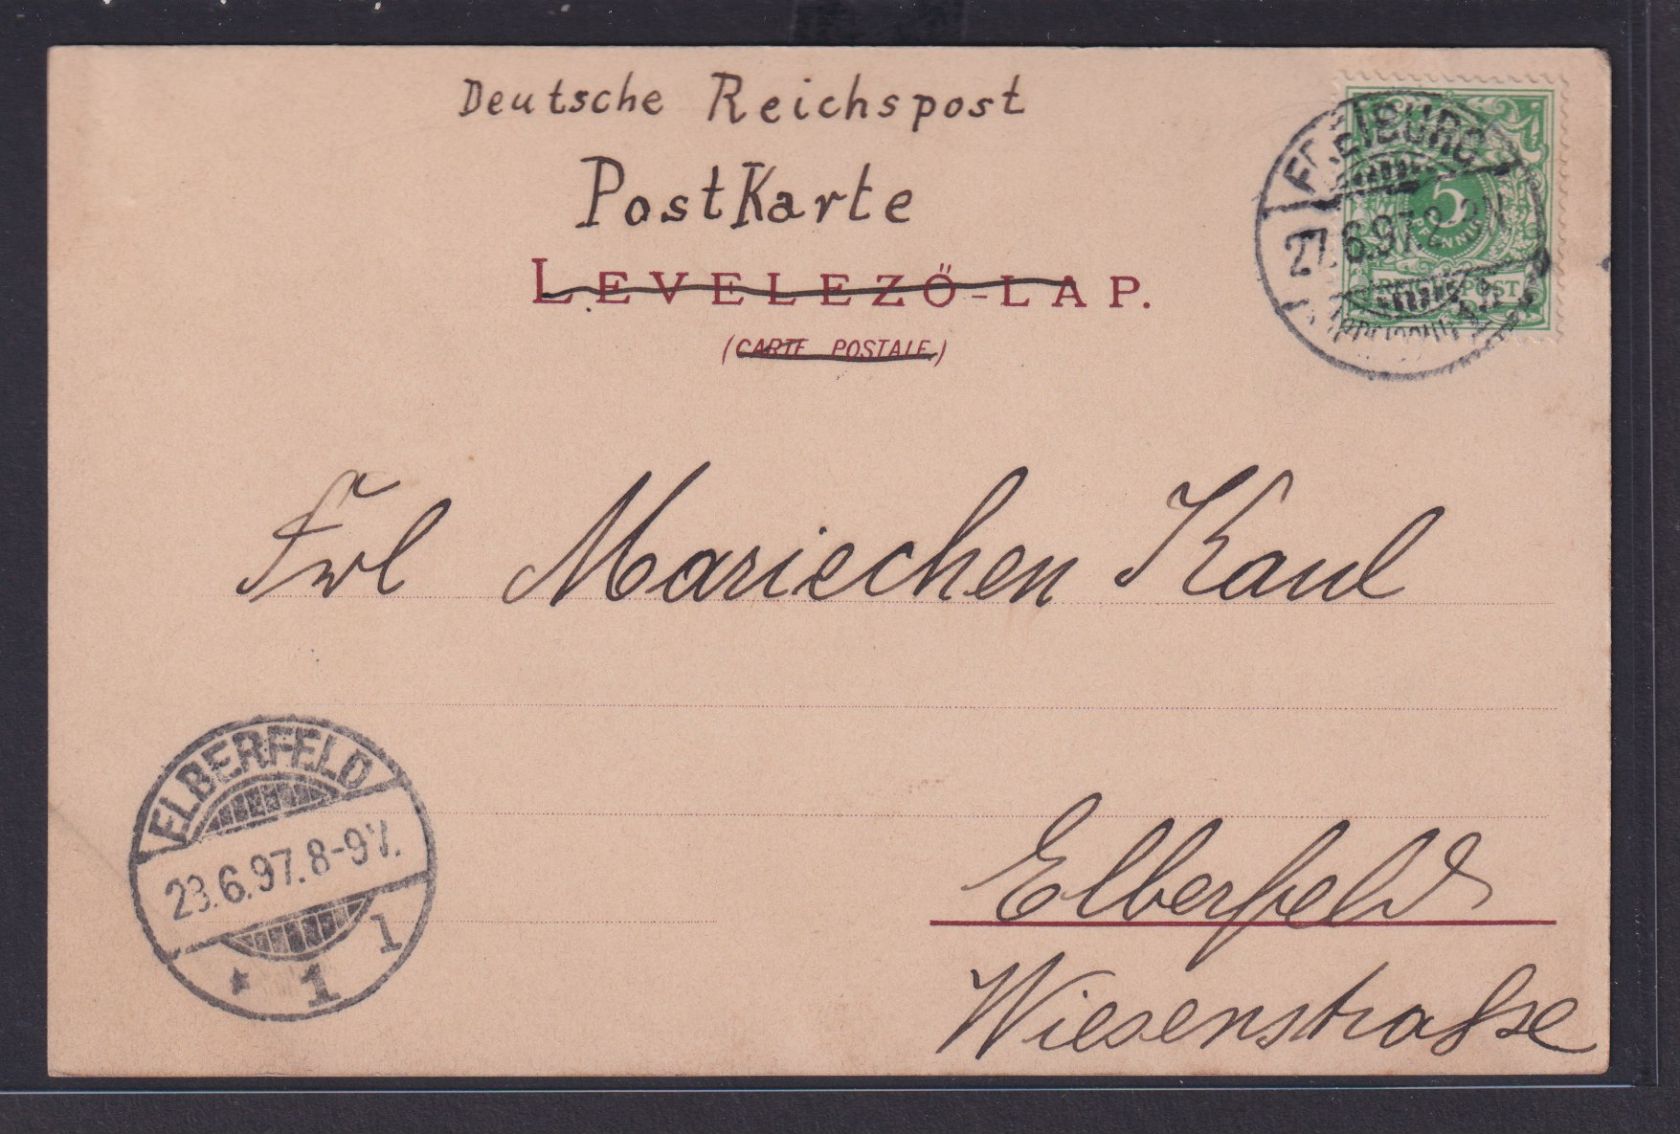 Deutsche Reichspost
PostKarte
LEVELEZŐ-LAP.
(CARTE POSTALE)
FREIBURG
27.6.97.2-3N
5
PFENNIG
REICHSPOST
Frl Mariechen Kaul
Elberfeld
Wiesenstraße
ELBERFELD
28.6.97.8-9V.
* 1 1